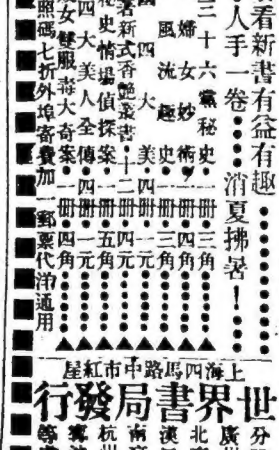 看新書有益有趣
人手一卷●●●●消夏拂暑！●●●
三十六黨秘史●一冊●三角
婦女妙術●一冊●四角
風流趣史●一冊●三角
四大美●四冊●一元
著新式香艷叢書●十二冊●四元
秘史情場偵探案●一冊●五角
四大美人全傳●四冊●一元
女雙服毒大奇案●一冊●四角
照碼七折外埠寄費加一郵票代洋通用
上海四馬路中市紅屋
世界書局發行
分
廣州
北
漢
南
杭州
等